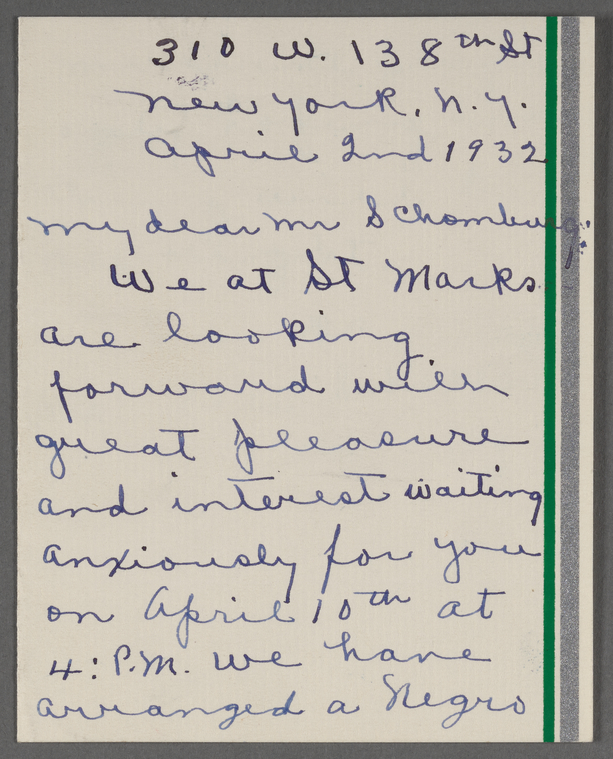 310 W. 138th St
New York, N.Y.
April 2nd 1932
My dear Mr Schomburg:
We at St Marks
are looking
forward with
great pleasure
and interest waiting
anxiously for you
on April 10th at
4: P.M. We have
arranged a Negro